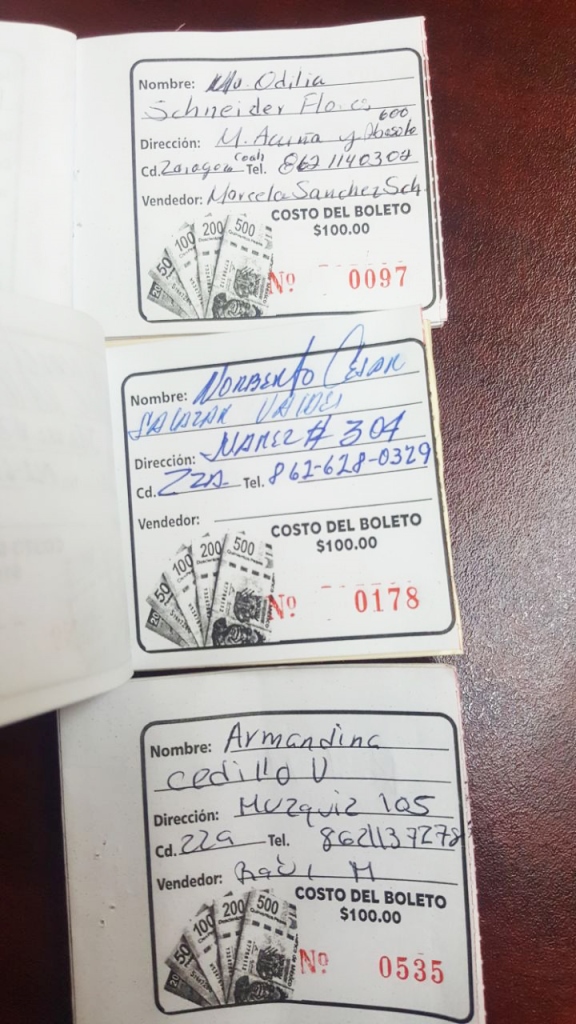 Nombre: Ma. Odilia
Schneider Flores
600
Dirección: M. Acuña y Abasolo
Cd. Zaragoza Coah Tel. 862 1140302
Vendedor: Marcela Sanchez Sch.
COSTO DEL BOLETO
$100.00
50 100 200 500
Nº 0097
Nombre: Norberto Cesar
Salazar Valdes
Dirección: Juarez # 304
Cd. ZZA Tel. 862-628-0329
Vendedor:
COSTO DEL BOLETO
$100.00
20 50 100 200 500
Nº 0178
Nombre: Armandina
Cedillo V
Dirección: Muzquiz 105
Cd. ZZa Tel. 8621137278
Vendedor: Raúl M
COSTO DEL BOLETO
$100.00
20 50 100 200 500
Nº 0535